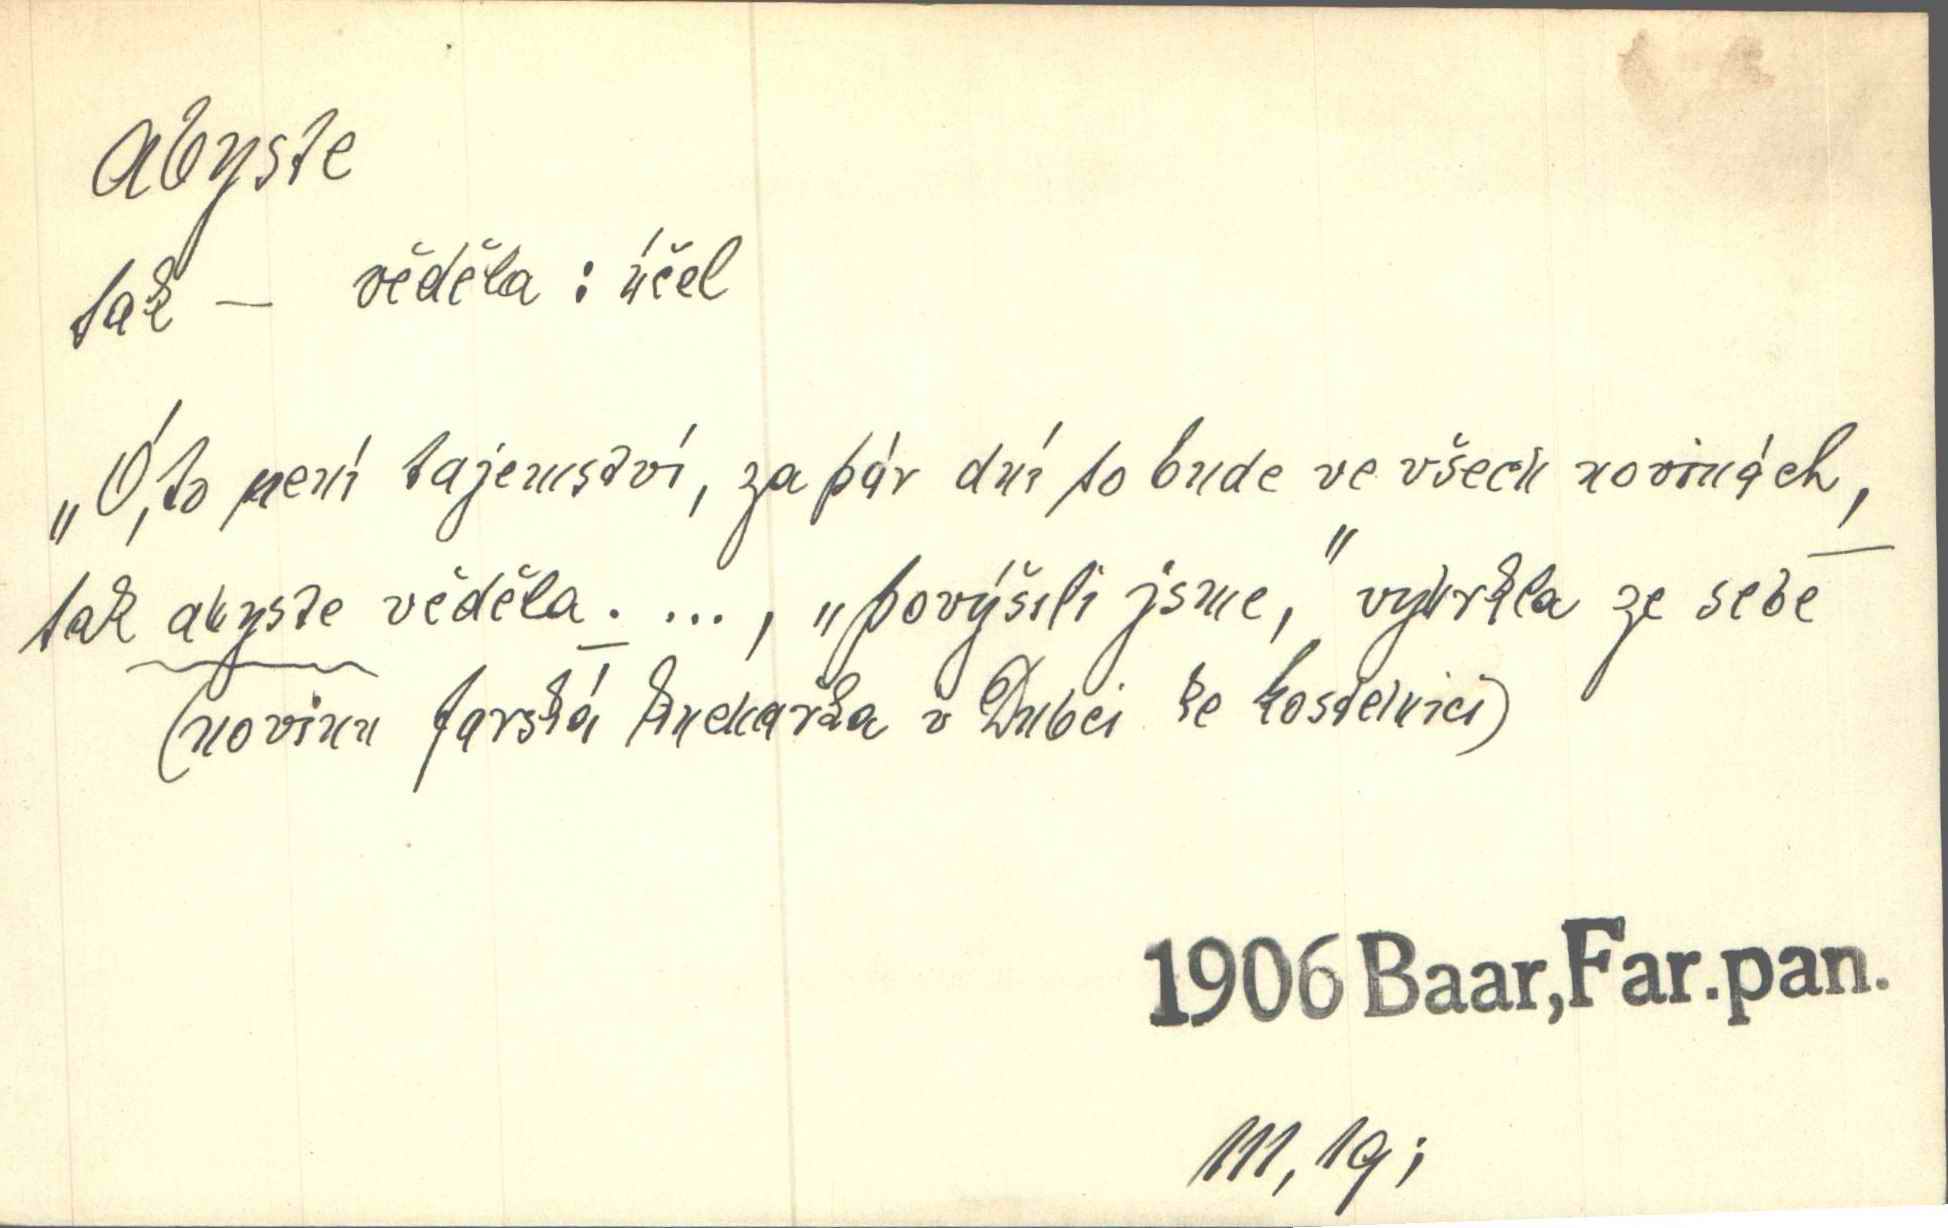 abyste
tak — věděla : účel
„Ó, to není tajemství, za pár dní to bude ve všech novinách,
tak abyste věděla . ..., „povýšili jsme,“ vyhrkla ze sebe
(novinu farská kuchařka v Dubci ke kostelnici)
1906 Baar, Far. pan.
111, 19;